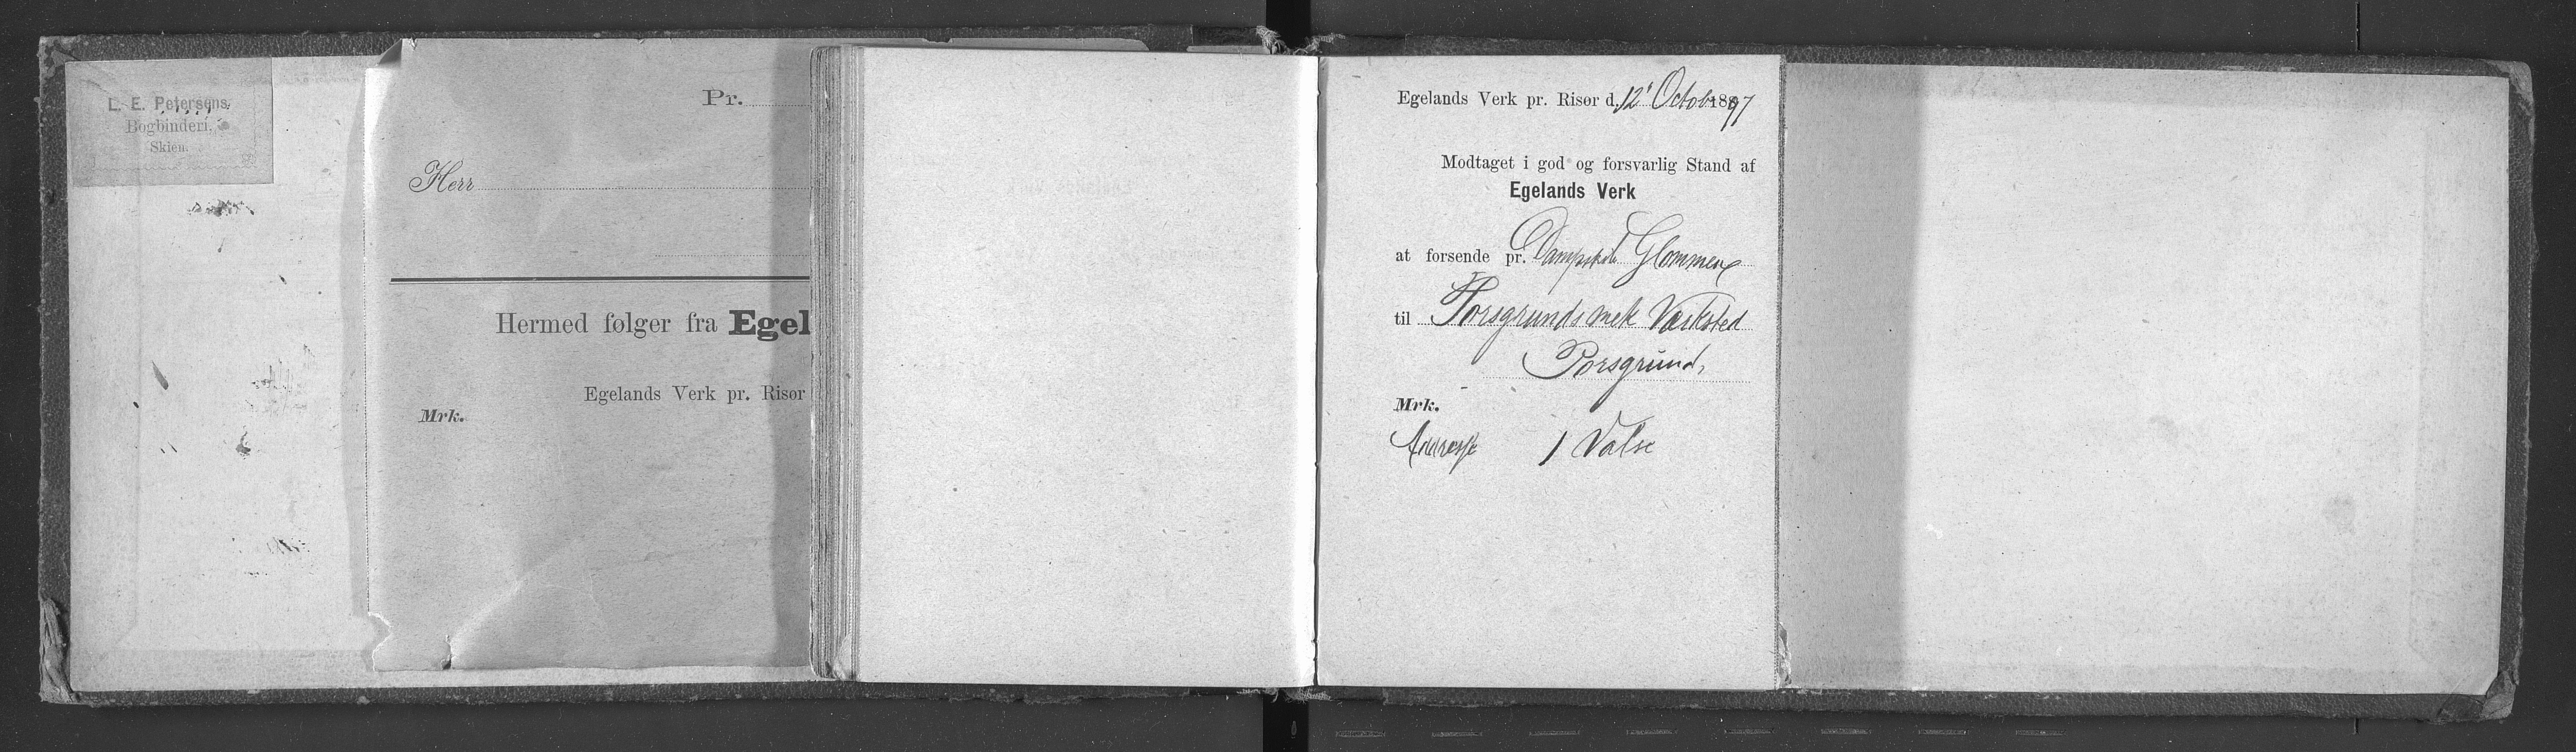 L. E. Petersens
Bogbinderi.
Skien.
Pr.
Herr
Hermed følger fra Egel
Egelands Verk pr. Risør
Mrk.
Egelands Verk pr. Risør d. 12' Octob 1897
Modtaget i god og forsvarlig Stand af
Egelands Verk
at forsende pr. Dampskib Glommen
til Porsgrunds mek Værksted
Porsgrund,
Mrk.
Adresse 1 Valse